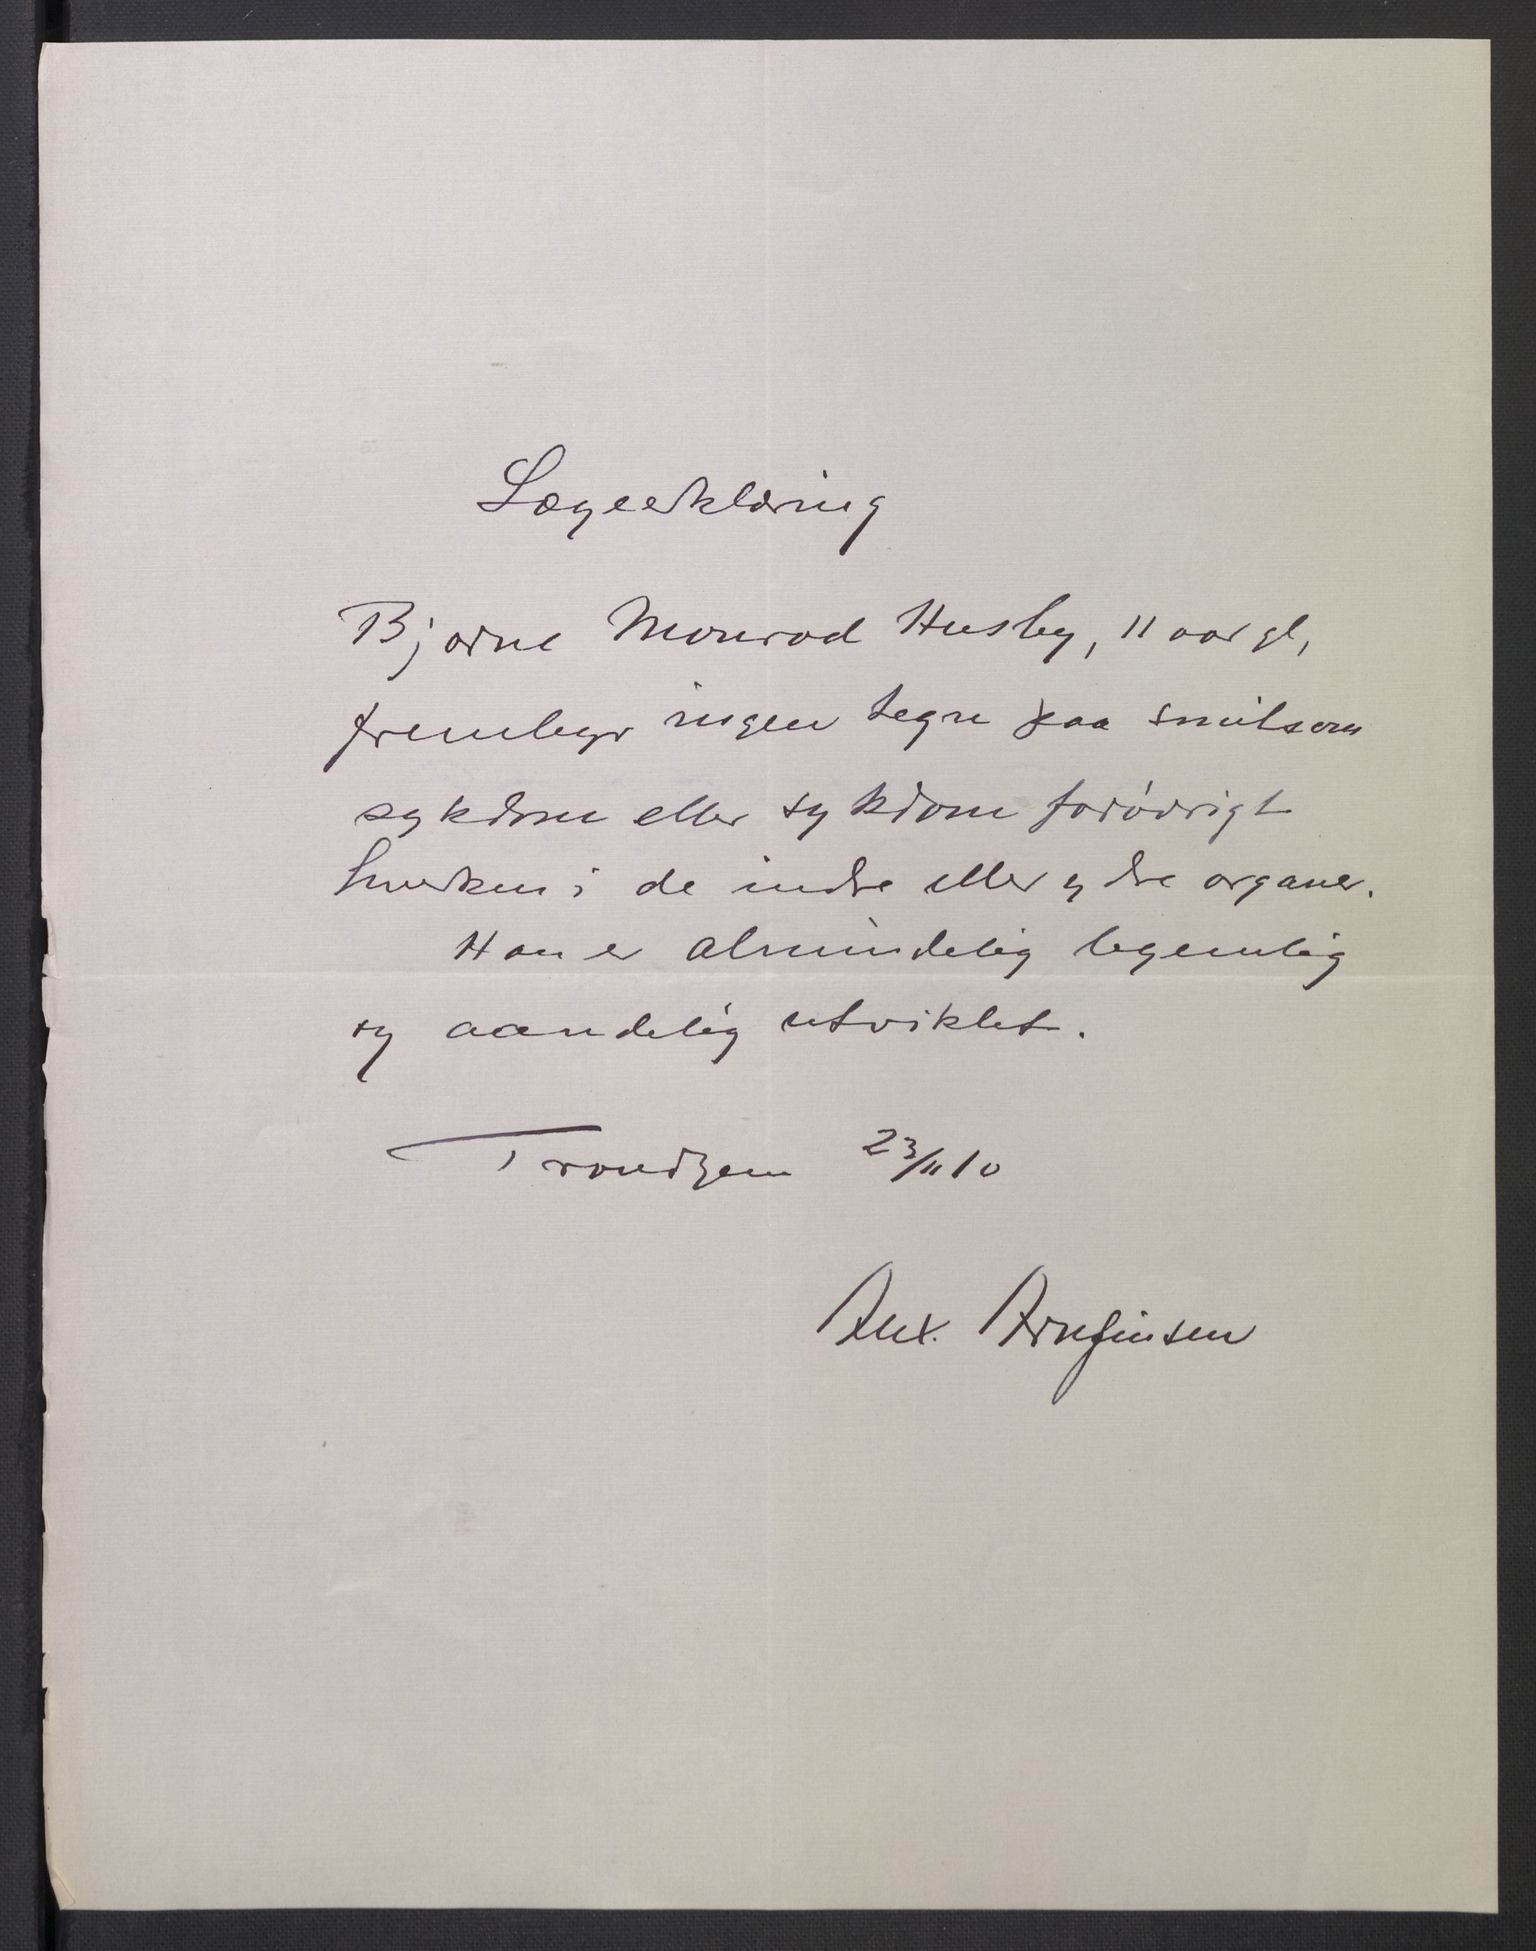 Lægeerklæring
Bjarne Monrad Husby, 11 aar gl,
frembyr ingen tegn paa smitsom
sykdom eller sykdom forøvrigt
hverken i de indre eller ydre organer.
Han er almindelig legemlig
og aandelig utviklet.
Trondhjem 23/11 10
Alex. Brufinsen